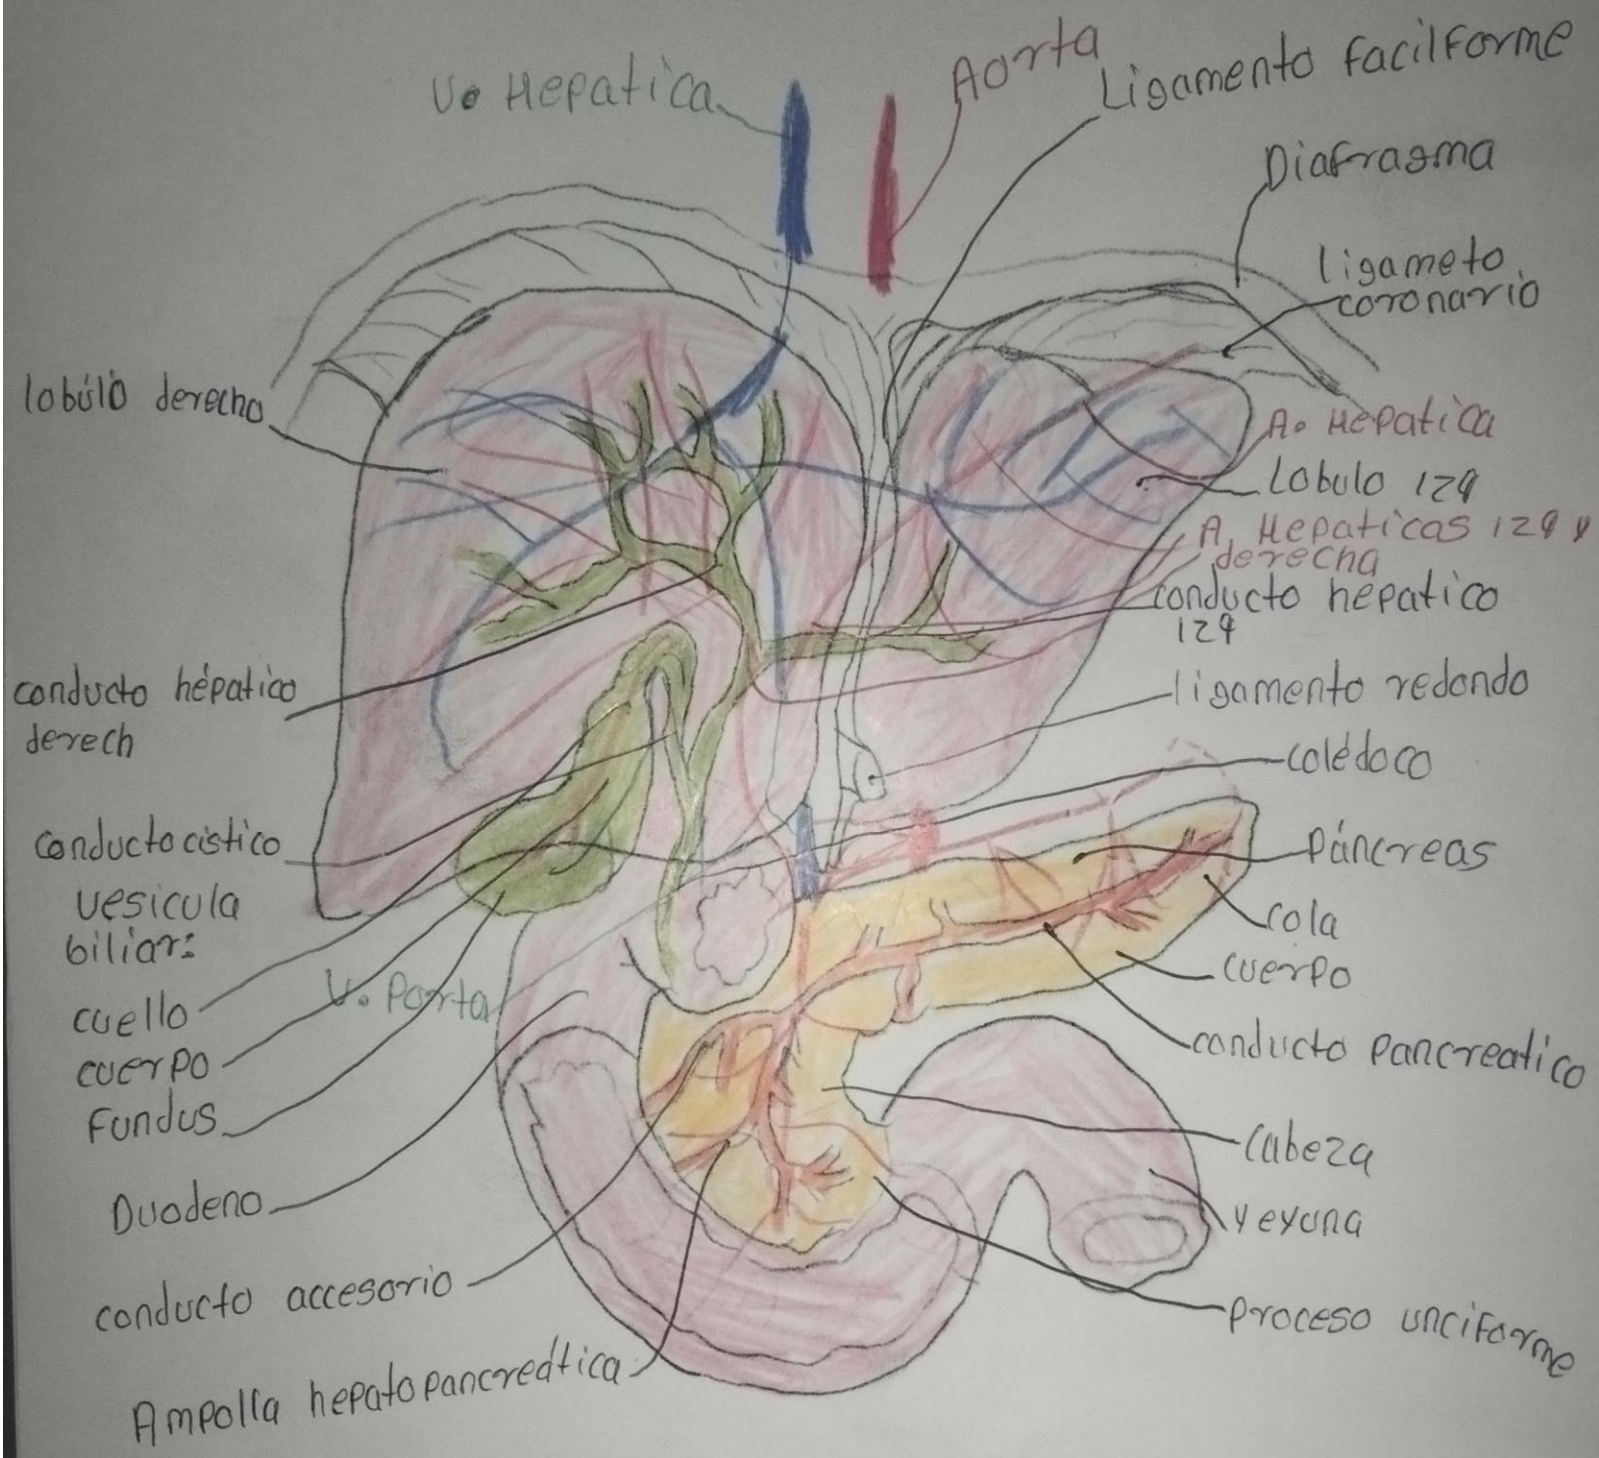 V. Hepatica
Aorta
Ligamento facilforme
Diafragma
ligameto
coronario
lobúlo derecho
A. Hepatica
Lobulo izq
A. Hepaticas izq y
derecha
conducto hepatico
izq
conducto hépatico
derech
ligamento redondo
colédoco
conducto cistico
páncreas
vesicula
biliar:
cola
cuerpo
V. Porta
cuello
conducto pancreatico
cuerpo
Fundus
cabeza
Duodeno
yeyuna
conducto accesorio
proceso unciforme
Ampolla hepatopancreática